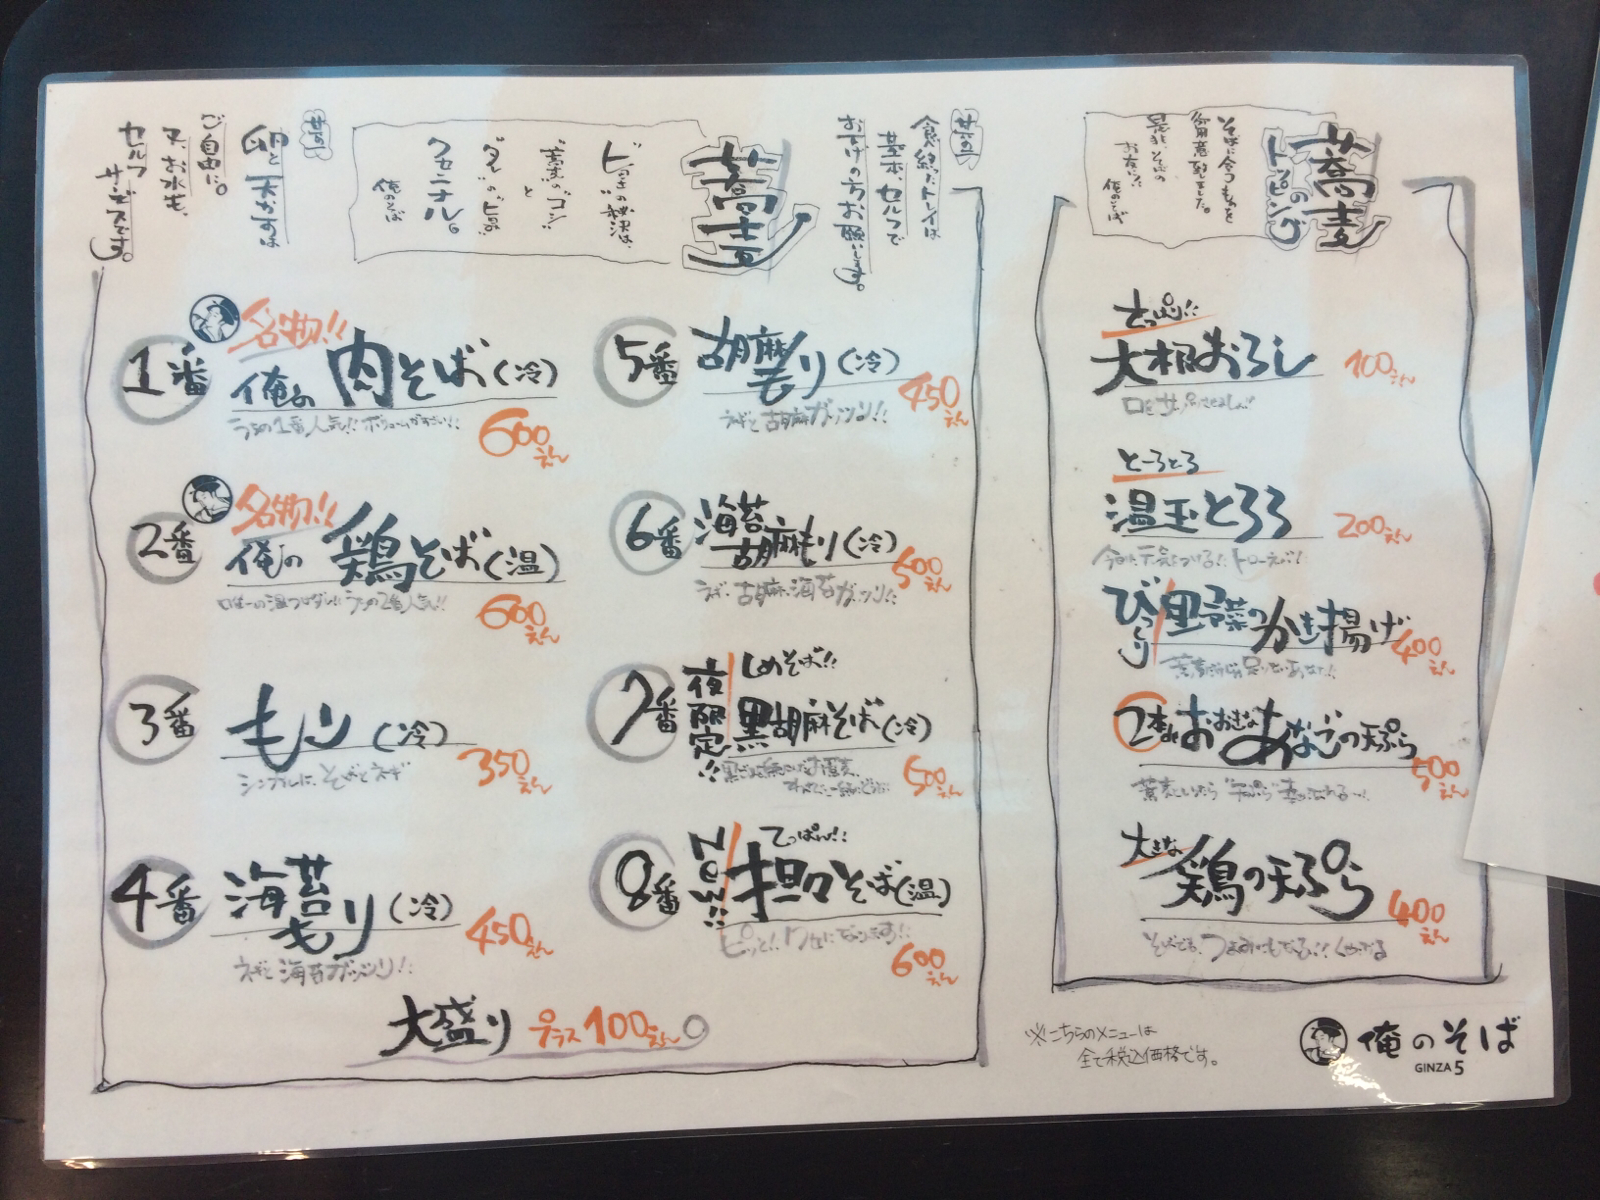 蕎麦
其の一
卵と天かすは
ご自由に。
又、お水も、
セルフ
サービスです。
其の二
食べ終えたトレイは
基本、セルフで
お下げの方お願いします。
俺のそば
クセニナル。
1番
名物!!
俺の肉そば(冷)
うちの1番人気!!ボリュームがすごい!!
600えん
2番
名物!!
俺の鶏そば(温)
うちの2番人気!!
600えん
3番
もり(冷)
シンプルに、そばとネギ
350えん
4番
海苔もり(冷)
ネギと海苔ガッツリ!!
450えん
5番
胡麻もり(冷)
ネギと胡麻ガッツリ!!
450えん
6番
海苔胡麻もり(冷)
ネギ、胡麻、海苔ガッツリ!!
500えん
7番
夜限定!!
しめそば!!
黒胡麻そば(冷)
500えん
8番
New!!
てっぱん!!
担々そば(温)
ピリッと!!クセになります!!
600えん
大盛り プラス100えん。
蕎麦のトッピング
そばに合うものを
御用意致しました。
是非、そばの
お友に!!
俺のそば
さっぱり!!
大根おろし
100えん
とーろとろ
温玉とろろ
200えん
びっくり
野菜のかき揚げ
400えん
2本のおおきなあなごの天ぷら
500えん
大きな
鶏の天ぷら
400えん
※こちらのメニューは
全て税込価格です。
俺のそば
GINZA 5